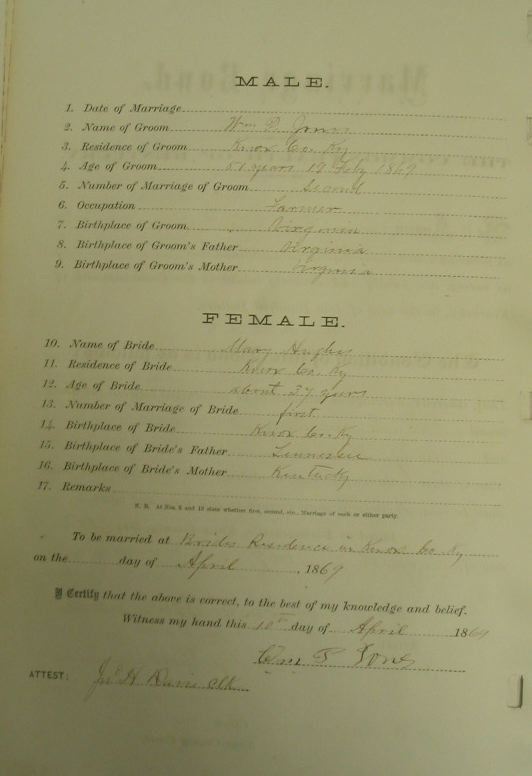 MALE.
1. Date of Marriage
2. Name of Groom Wm P. Jones
3. Residence of Groom Knox Co. Ky
4. Age of Groom 51 years 19 Feby 1869
5. Number of Marriage of Groom Second
6. Occupation Farmer
7. Birthplace of Groom Virginia
8. Birthplace of Groom's Father Virginia
9. Birthplace of Groom's Mother Virginia
FEMALE.
10. Name of Bride Mary Hughes
11. Residence of Bride Knox Co. Ky
12. Age of Bride about 37 years
13. Number of Marriage of Bride first
14. Birthplace of Bride Knox Co. Ky
15. Birthplace of Bride's Father Tennessee
16. Birthplace of Bride's Mother Kentucky
17. Remarks
N. B. At Nos. 5 and 13 state whether first, second, etc., Marriage of each or either party.
To be married at Brides Residence in Knox Co. Ky
on the day of April , 1869
I Certify that the above is correct, to the best of my knowledge and belief.
Witness my hand this 10th day of April 1869
Wm P Jones
ATTEST: Jno H Davis Clk